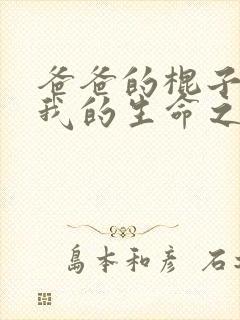 爸爸的棍子
我的生命之
島本和彦 石